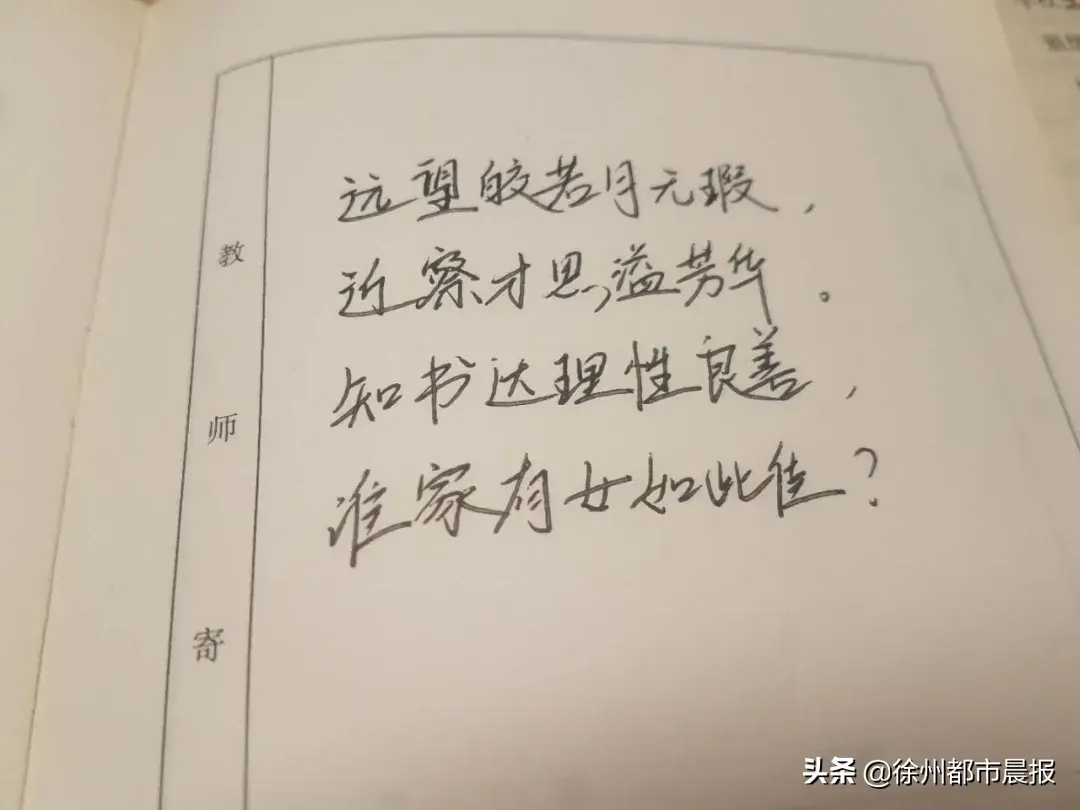 远望皎若月无瑕，
近察才思溢芳华。
知书达理性良善，
谁家有女如此佳？
教师寄
头条 @徐州都市晨报